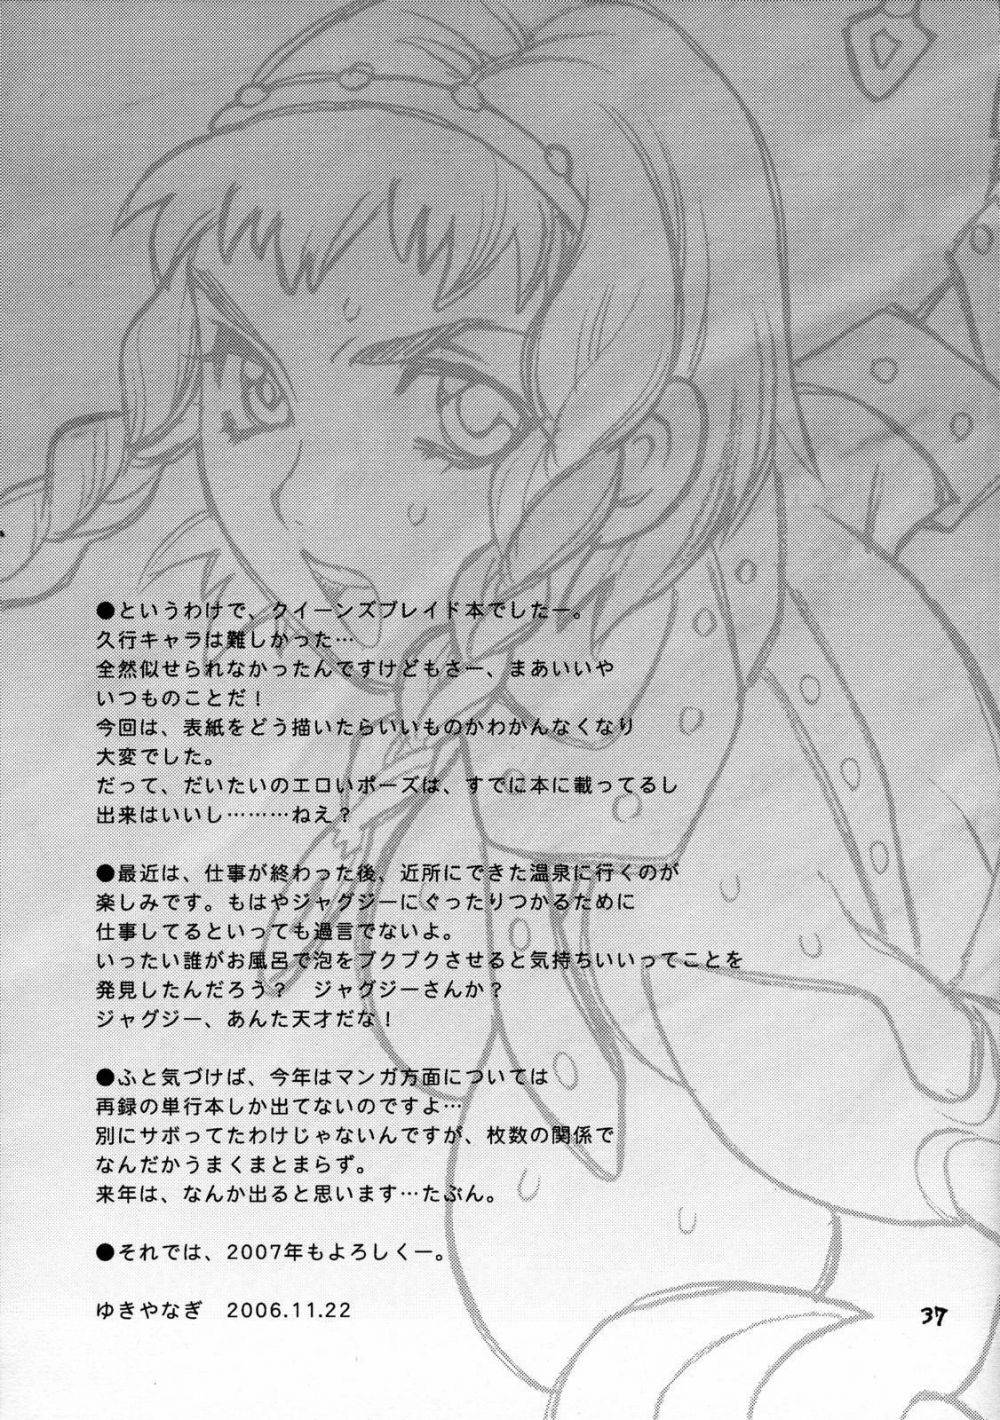 ●というわけで、クイーンズブレイド本でしたー。
久行キャラは難しかった…
全然似せられなかったんですけどもさー、まあいいや
いつものことだ！
今回は、表紙をどう描いたらいいものかわかんなくなり
大変でした。
だって、だいたいのエロいポーズは、すでに本に載ってるし
出来はいいし………ねえ？
●最近は、仕事が終わった後、近所にできた温泉に行くのが
楽しみです。もはやジャグジーにぐったりつかるために
仕事してるといっても過言でないよ。
いったい誰がお風呂で泡をブクブクさせると気持ちいいってことを
発見したんだろう？　ジャグジーさんか？
ジャグジー、あんた天才だな！
●ふと気づけば、今年はマンガ方面については
再録の単行本しか出てないのですよ…
別にサボってたわけじゃないんですが、枚数の関係で
なんだかうまくまとまらず。
来年は、なんか出ると思います…たぶん。
●それでは、2007年もよろしくー。
ゆきやなぎ　2006.11.22
37